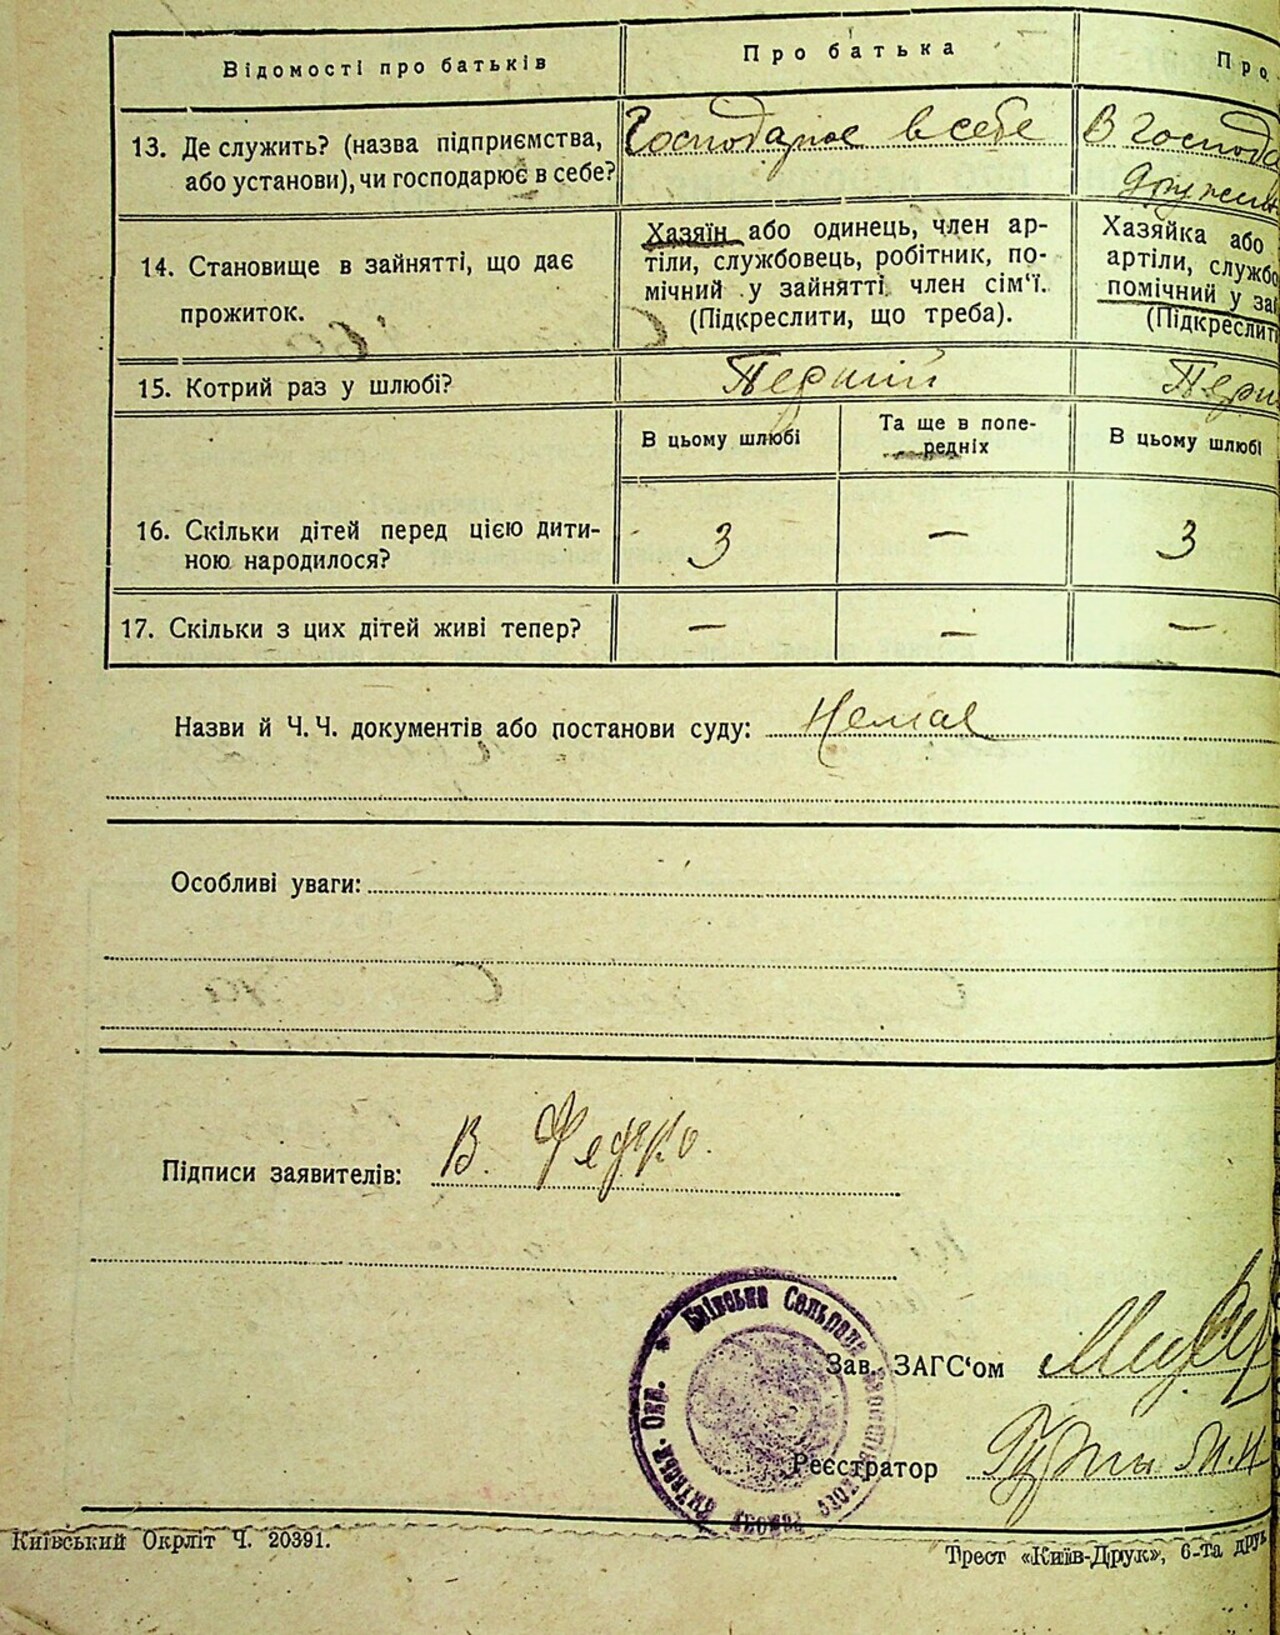 Відомості про батьків
Про батька
Про
13. Де служить? (назва підприємства,
або установи), чи господарює в себе?
Господарює в себе
В господа
14. Становище в зайнятті, що дає
прожиток.
Хазяїн або одинець, член ар-
тіли, службовець, робітник, по-
мічний у зайнятті член сім'ї.
(Підкреслити, що треба).
Хазяйка або
артіли, службо
помічний у за
(Підкреслит
15. Котрий раз у шлюбі?
Перший
Перш
В цьому шлюбі
Та ще в попе-
редніх
В цьому шлюбі
16. Скільки дітей перед цією дити-
ною народилося?
3
—
3
17. Скільки з цих дітей живі тепер?
—
—
—
Назви й Ч. Ч. документів або постанови суду: Немає
Особливі уваги:
Підписи заявителів: В. Федько.
Зав. ЗАГС'ом
Реєстратор
Сельрада
Київський Окрліт Ч. 20391.
Трест «Київ-Друк», 6-та друк